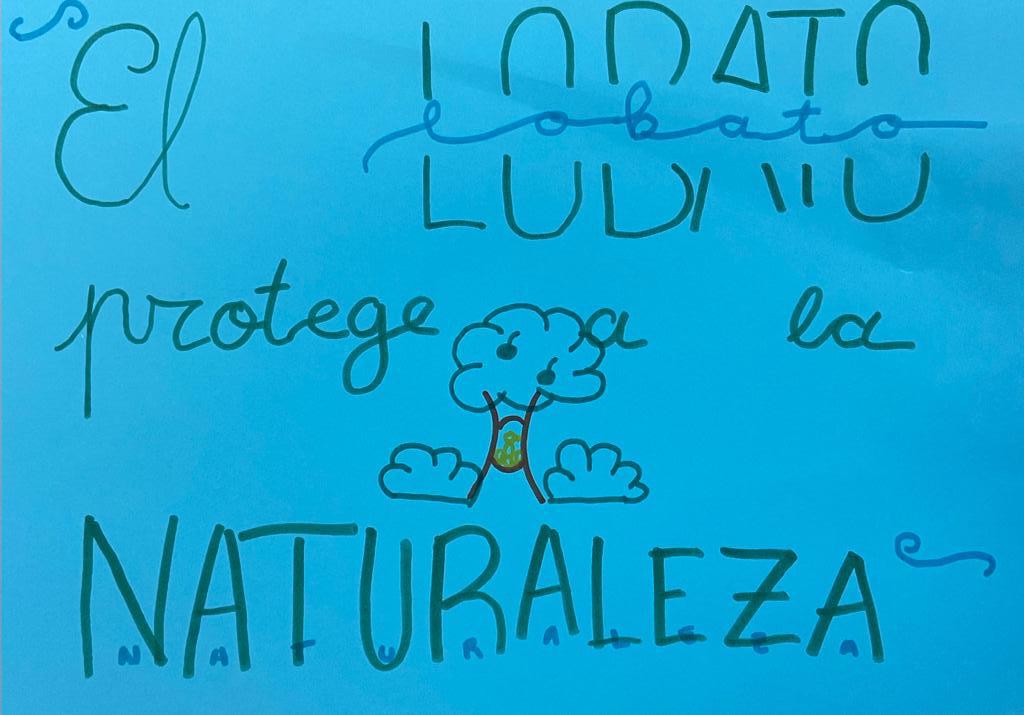 El LOBATO
lobato
protege a la
NATURALEZA
NATURALEZA